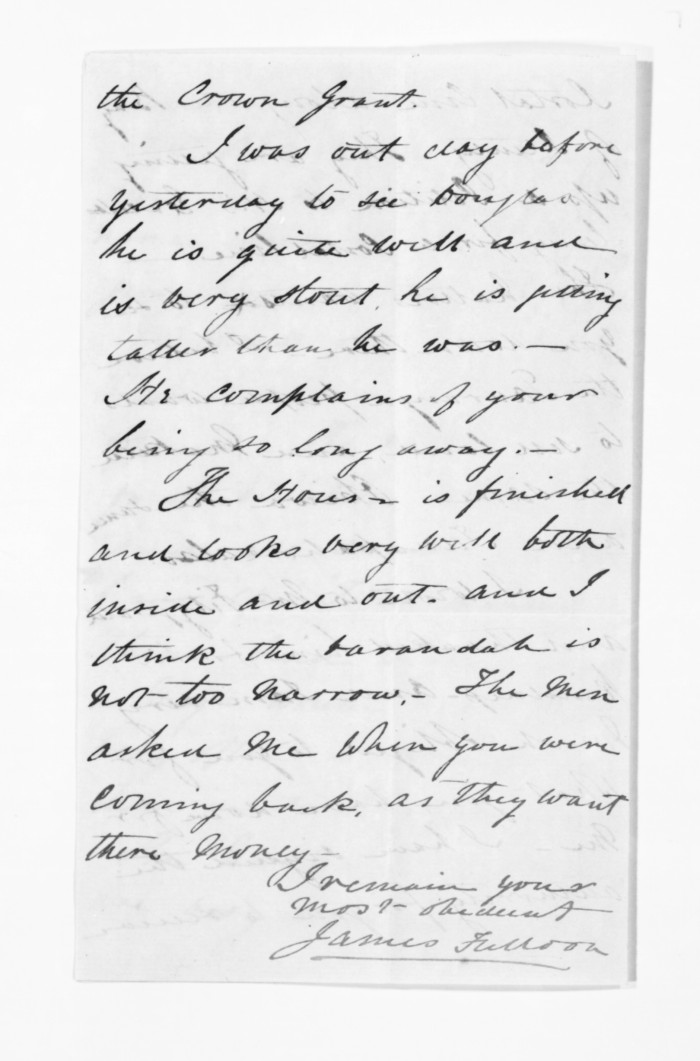 the Crown Grant.
I was out day before
yesterday to see Douglas
he is quite well and
is very stout. he is getting
taller than he was. —
He complains of your
being so long away. —
The House is finished
and looks very well both
inside and out. and I
think the varandah is
not too narrow. — The Men
asked Me When you were
coming back, as they want
there Money —
I remain your
most obedient
James Fulloon